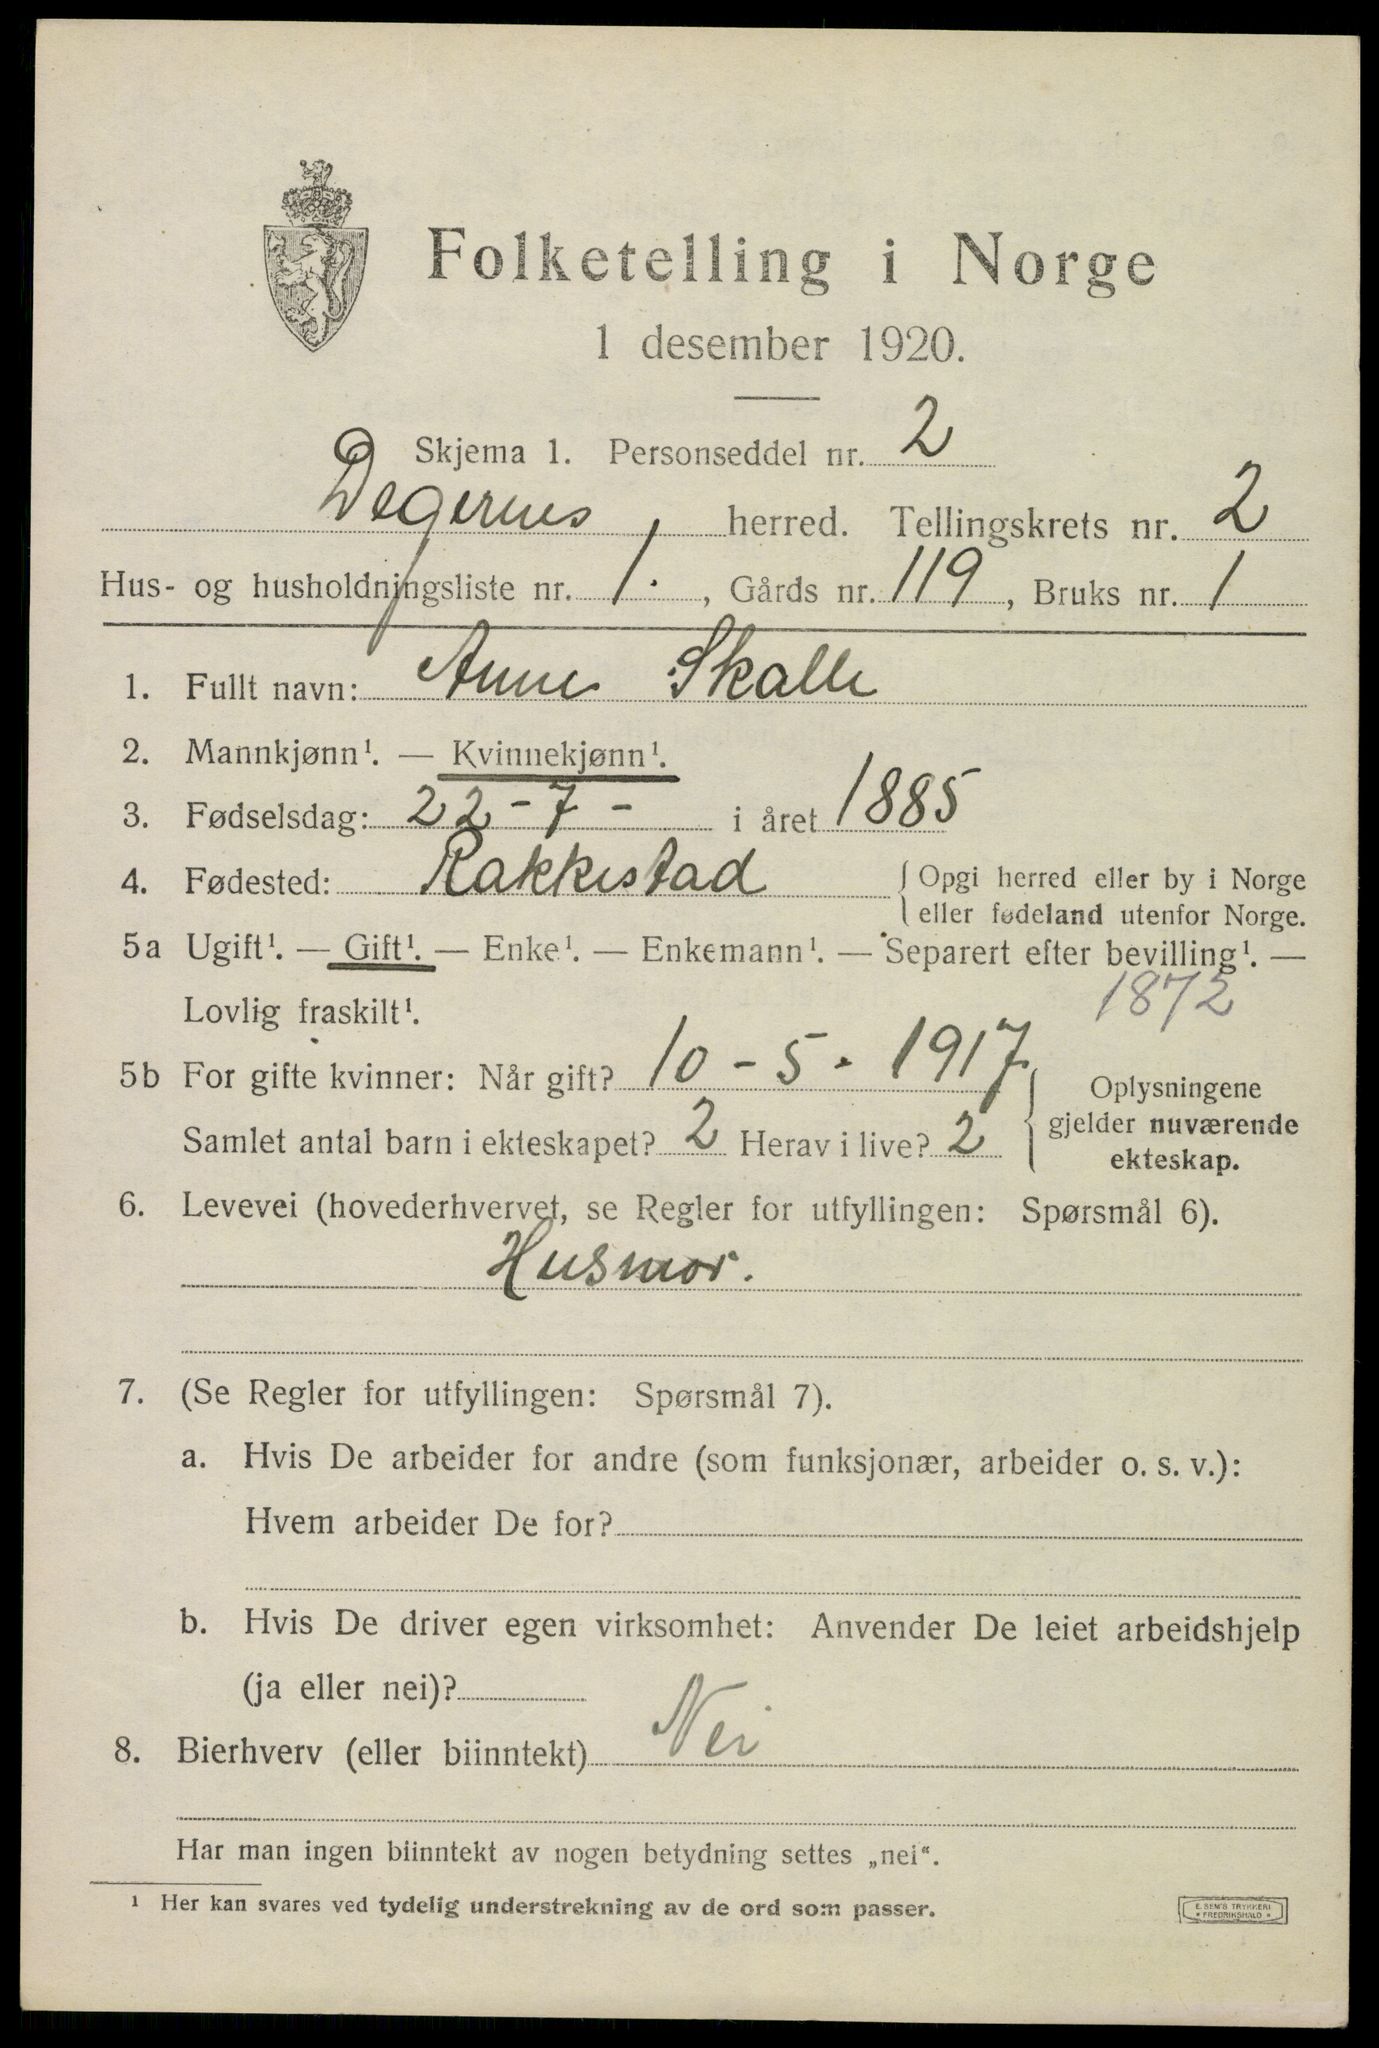 Folketelling i Norge
1 desember 1920.
Skjema 1. Personseddel nr. 2
Degernes herred. Tellingskrets nr. 2
Hus- og husholdningsliste nr. 1. , Gårds nr. 119, Bruks nr. 1
1. Fullt navn: Anne Skalle
2. Mannkjønn¹. — Kvinnekjønn¹.
3. Fødselsdag: 22 - 7 - i året 1885
4. Fødested: Rakkestad { Opgi herred eller by i Norge
eller fødeland utenfor Norge.
5a Ugift¹. — Gift¹. — Enke¹. — Enkemann¹. — Separert efter bevilling¹. —
Lovlig fraskilt¹. 1872
5b For gifte kvinner: Når gift? 10 - 5 - 1917
Samlet antal barn i ekteskapet? 2 Herav i live? 2
Oplysningene
gjelder nuværende
ekteskap.
6. Levevei (hovederhvervet, se Regler for utfyllingen: Spørsmål 6).
Husmor.
7. (Se Regler for utfyllingen: Spørsmål 7).
a. Hvis De arbeider for andre (som funksjonær, arbeider o. s. v.):
Hvem arbeider De for?
b. Hvis De driver egen virksomhet: Anvender De leiet arbeidshjelp
(ja eller nei)?
8. Bierhverv (eller biinntekt) Nei
Har man ingen biinntekt av nogen betydning settes „nei“.
¹ Her kan svares ved tydelig understrekning av de ord som passer.
E. SEM'S TRYKKERI
* FREDRIKSHALD *